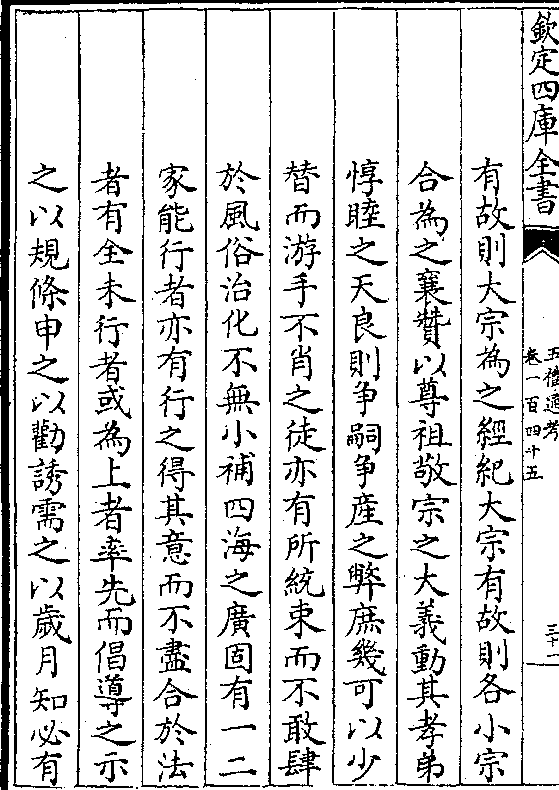 欽定四庫全書
五禮通考
卷一百四十五
三十一
有故則大宗為之經紀大宗有故則各小宗
合為之襄贊以尊祖敬宗之大義動其孝弟
惇睦之天良則争嗣争産之弊庶幾可以少
替而游手不肖之徒亦有所統束而不敢肆
於風俗治化不無小補四海之廣固有一二
家能行者亦有行之得其意而不盡合於法
者有全未行者或為上者率先而倡導之示
之以規條申之以勸誘需之以歲月知必有